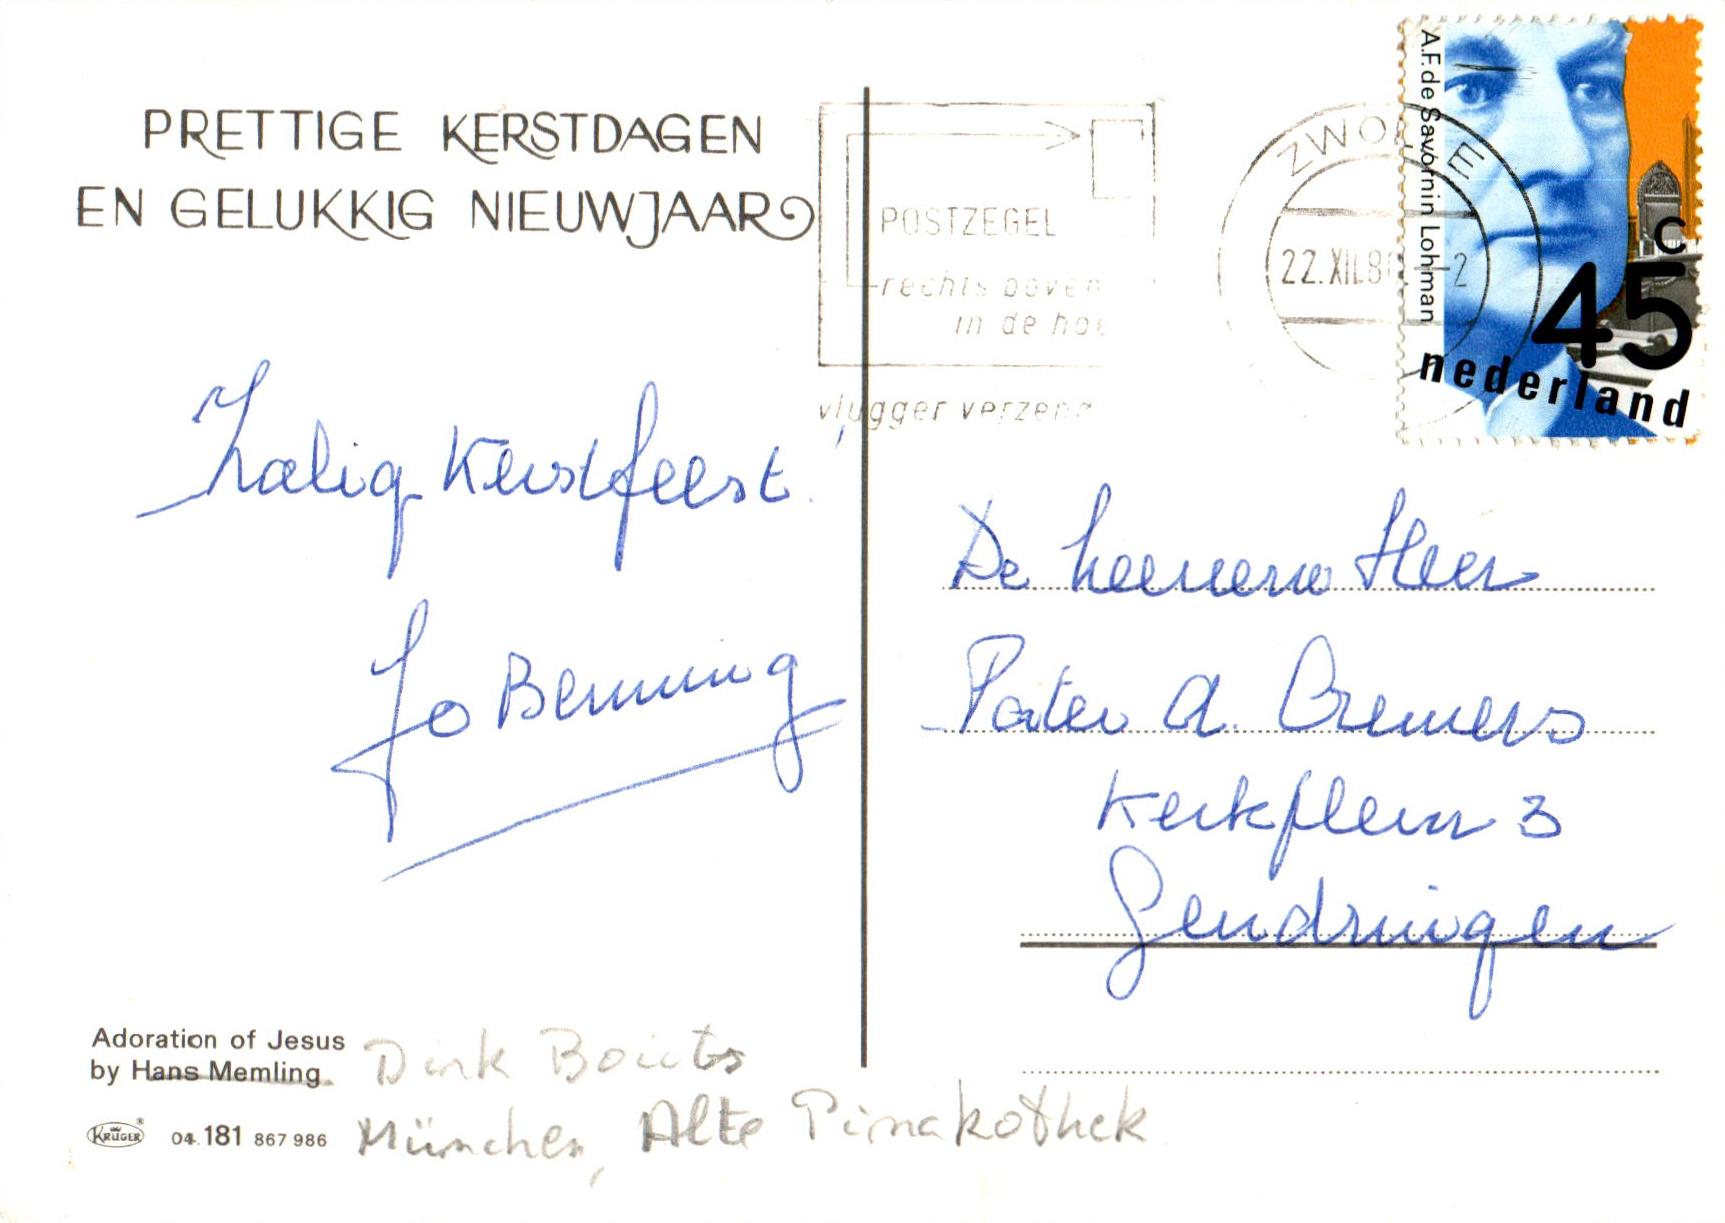 PRETTIGE KERSTDAGEN
EN GELUKKIG NIEUWJAAR
Zalig Kerstfeest.
Jo Benning
Adoration of Jesus
by Hans Memling
Dirk Bouts
München, Alte Pinakothek
KRÜGER 04.181 867 986
POSTZEGEL
rechts boven
in de hoe
vlugger verzend
ZWOLLE
22.XII.8 -2
A.F. de Savornin Lohman
45 c
nederland
De heer
Pater A. Cremers
Kerkplein 3
Gendringen